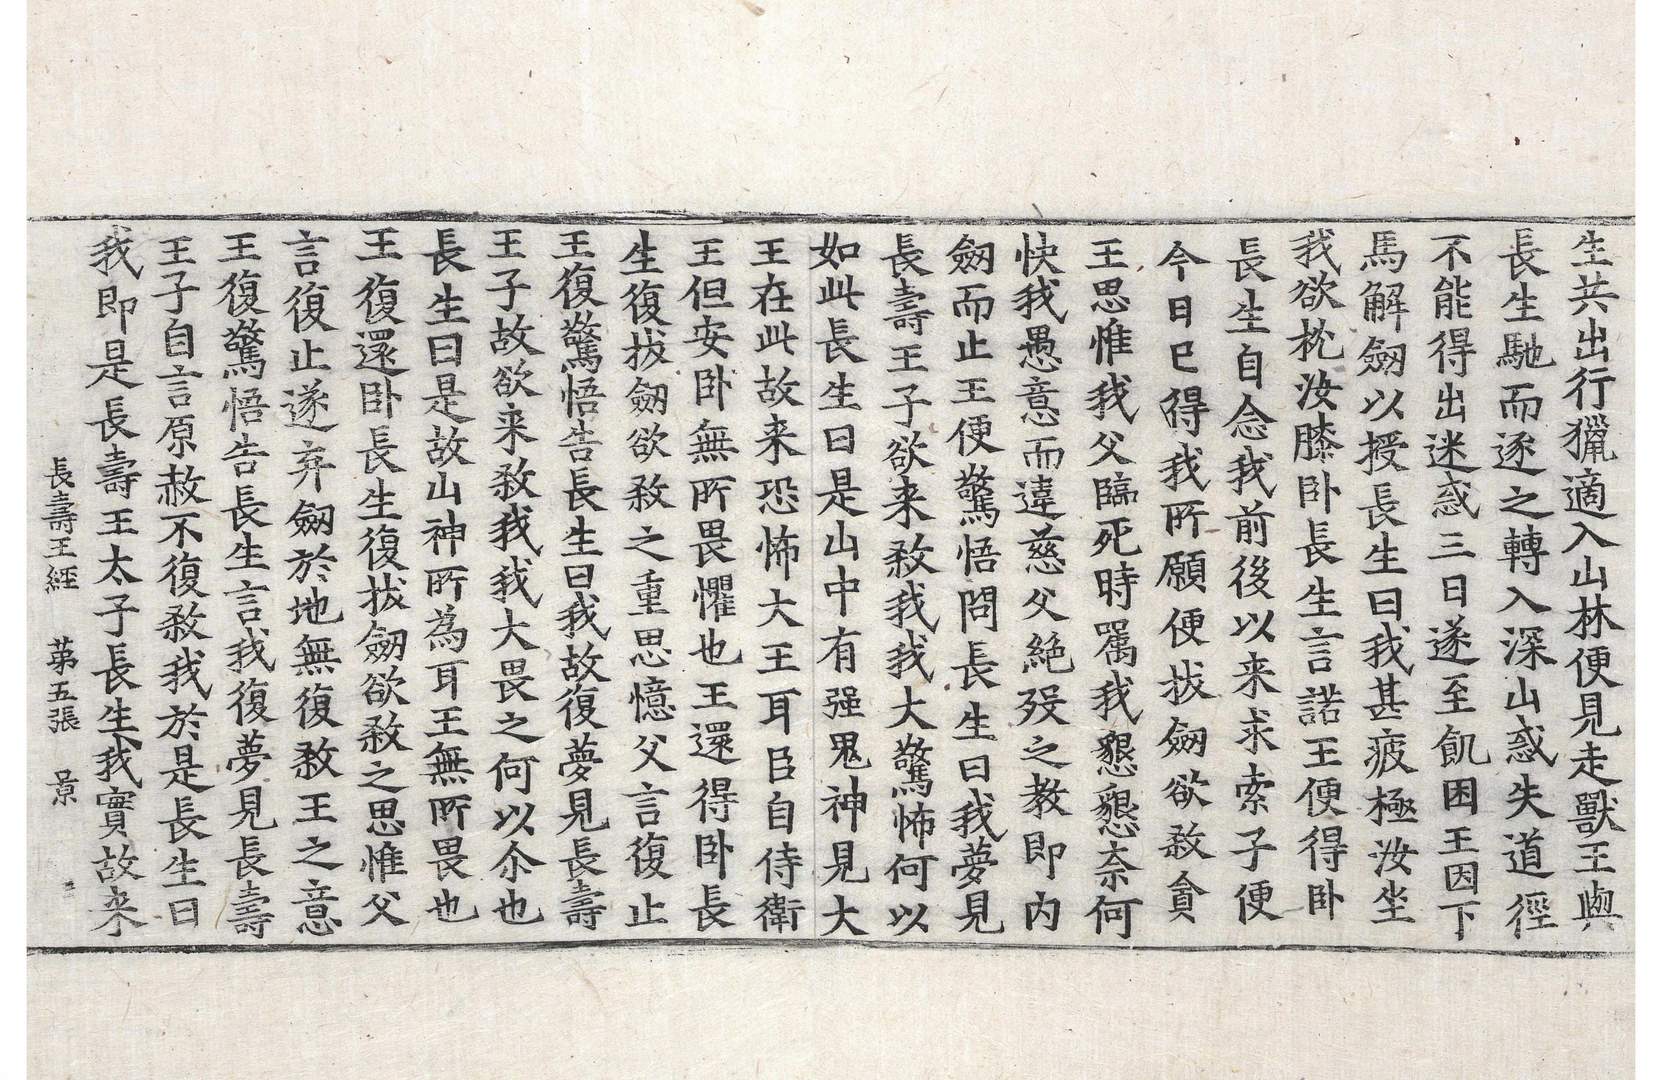 生共出行獵適入山林便見走獸王與
長生馳而逐之轉入深山惑失道徑
不能得出迷惑三日遂至飢困王因下
馬解劒以授長生曰我甚疲極汝坐
我欲枕汝膝卧長生言諾王便得卧
長生自念我前後以来求索子便
今日已得我所願便拔劒欲敎貪
王思惟我父臨死時囑我懇懇奈何
快我愚意而違慈父絶歿之教即内
劒而止王便驚悟問長生曰我夢見
長壽王子欲来敎我我大驚怖何以
如此長生曰是山中有强鬼神見大
王在此故来恐怖大王耳臣自侍衛
王但安卧無所畏懼也王還得卧長
生復拔劒欲敎之重思憶父言復止
王復驚悟告長生曰我故復夢見長壽
王子故欲来敎我我大畏之何以尒也
長生曰是故山神所為耳王無所畏也
王復還卧長生復拔劒欲敎之思惟父
言復止遂弃劒於地無復敎王之意
王復驚悟告長生言我復夢見長壽
王子自言原赦不復敎我於是長生曰
我即是長壽王太子長生我實故来
長壽王經 苐五張 景